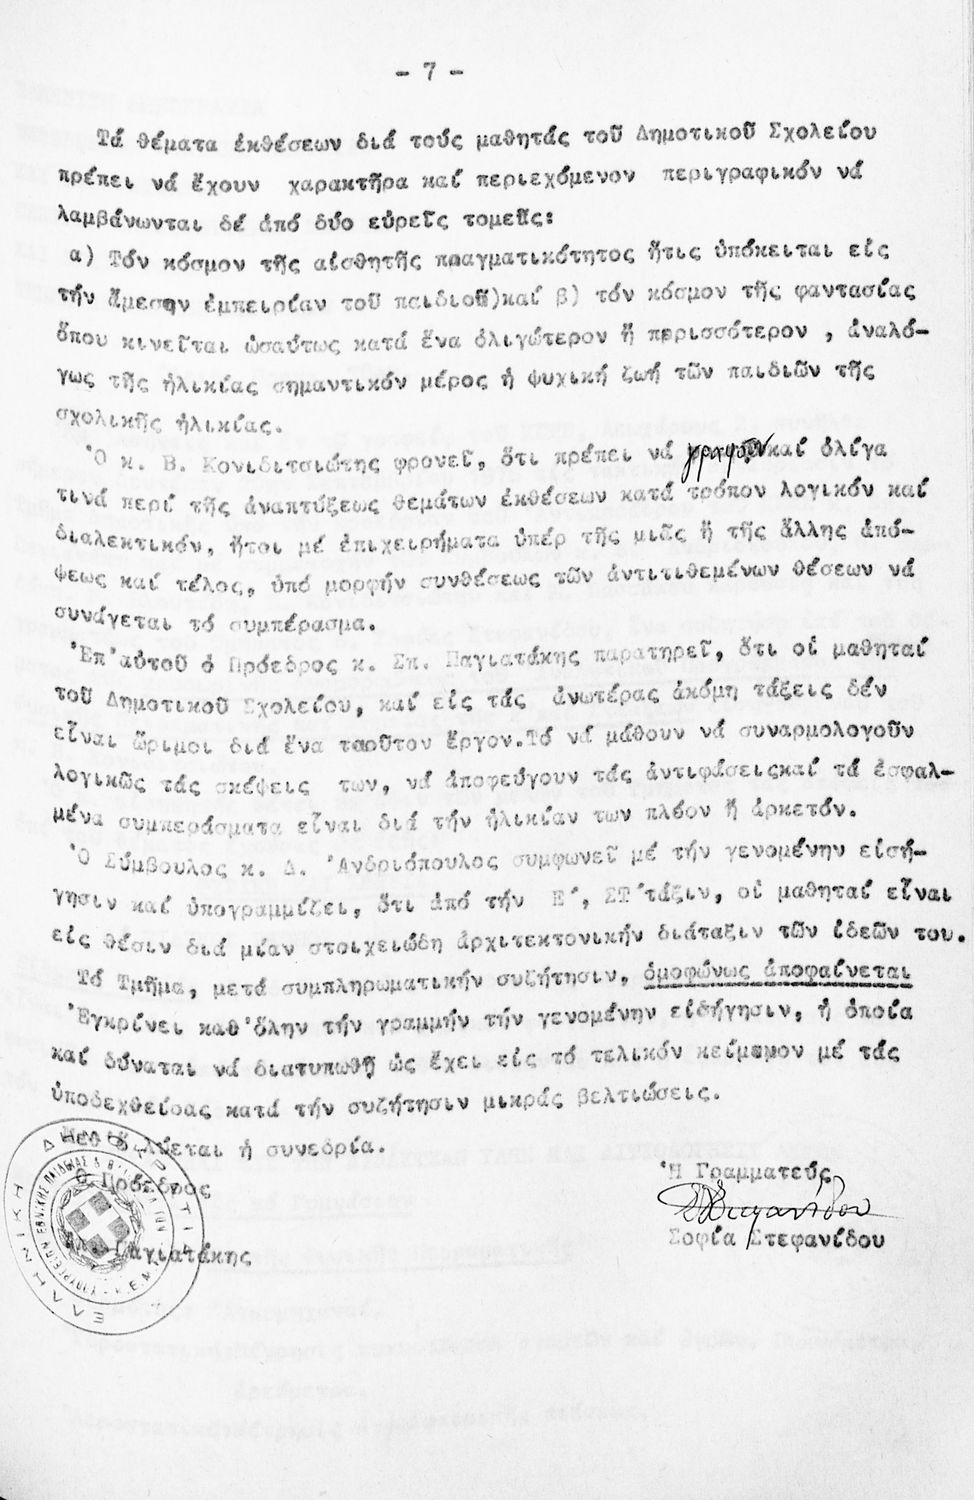 - 7 -
Τά θέματα ἐκθέσεων διά τούς μαθητάς τοῦ Δημοτικοῦ Σχολείου
πρέπει νά ἔχουν χαρακτῆρα καί περιεχόμενον περιγραφικόν νά
λαμβάνωνται δέ ἀπό δύο εὐρεῖς τομεῖς:
α) Τόν κόσμον τῆς αἰσθητῆς πραγματικότητος ἥτις ὑπόκειται εἰς
τήν ἄμεσην ἐμπειρίαν τοῦ παιδιοῦ)καί β) τόν κόσμον τῆς φαντασίας
ὅπου κινεῖται ὡσαύτως κατά ἕνα ὀλιγώτερον ἤ περισσότερον , ἀναλό-
γως τῆς ἡλικίας σημαντικόν μέρος ἡ ψυχική ζωή τῶν παιδιῶν τῆς
σχολικῆς ἡλικίας.
Ὁ κ. Β. Κονιδιτσιώτης φρονεῖ, ὅτι πρέπει νά γραφοῦν καί ὀλίγα
τινά περί τῆς ἀναπτύξεως θεμάτων ἐκθέσεων κατά τρόπον λογικόν καί
διαλεκτικόν, ἤτοι μέ ἐπιχειρήματα ὑπέρ τῆς μιᾶς ἤ τῆς ἄλλης ἀπό-
ψεως καί τέλος, ὑπό μορφήν συνθέσεως τῶν ἀντιτιθεμένων θέσεων νά
συνάγεται τό συμπέρασμα.
Ἐπ'αὐτοῦ ὁ Πρόεδρος κ. Σπ. Παγιατάκης παρατηρεῖ, ὅτι οἱ μαθηταί
τοῦ Δημοτικοῦ Σχολείου, καί εἰς τάς ἀνωτέρας ἀκόμη τάξεις δέν
εἶναι ὥριμοι διά ἕνα τοιοῦτον ἔργον.Τό νά μάθουν νά συναρμολογοῦν
λογικῶς τάς σκέψεις των, νά ἀποφεύγουν τάς ἀντιφάσειςκαί τά ἐσφαλ-
μένα συμπεράσματα εἶναι διά τήν ἡλικίαν των πλέον ἤ ἀρκετόν.
Ὁ Σύμβουλος κ. Δ. Ἀνδριόπουλος συμφωνεῖ μέ τήν γενομένην εἰσή-
γησιν καί ὑπογραμμίζει, ὅτι ἀπό τήν Ε΄, ΣΤ΄τάξιν, οἱ μαθηταί εἶναι
εἰς θέσιν διά μίαν στοιχειώδη ἀρχιτεκτονικήν διάταξιν τῶν ἰδεῶν του.
Τό Τμῆμα, μετά συμπληρωματικήν συζήτησιν, ὁμοφώνως ἀποφαίνεται
Ἐγκρίνει καθ'ὅλην τήν γραμμήν τήν γενομένην εἰσήγησιν, ἡ ὁποία
καί δύναται νά διατυπωθῇ ὡς ἔχει εἰς τό τελικόν κείμενον μέ τάς
ὑποδεχθείσας κατά τήν συζήτησιν μικράς βελτιώσεις.
Μεθ' ὅ λύεται ἡ συνεδρία.
Ὁ Πρόεδρος
Ἡ Γραμματεύς
Παγιατάκης
Σοφία Στεφανίδου
ΕΛΛΗΝΙΚΗ ΔΗΜΟΚΡΑΤΙΑ